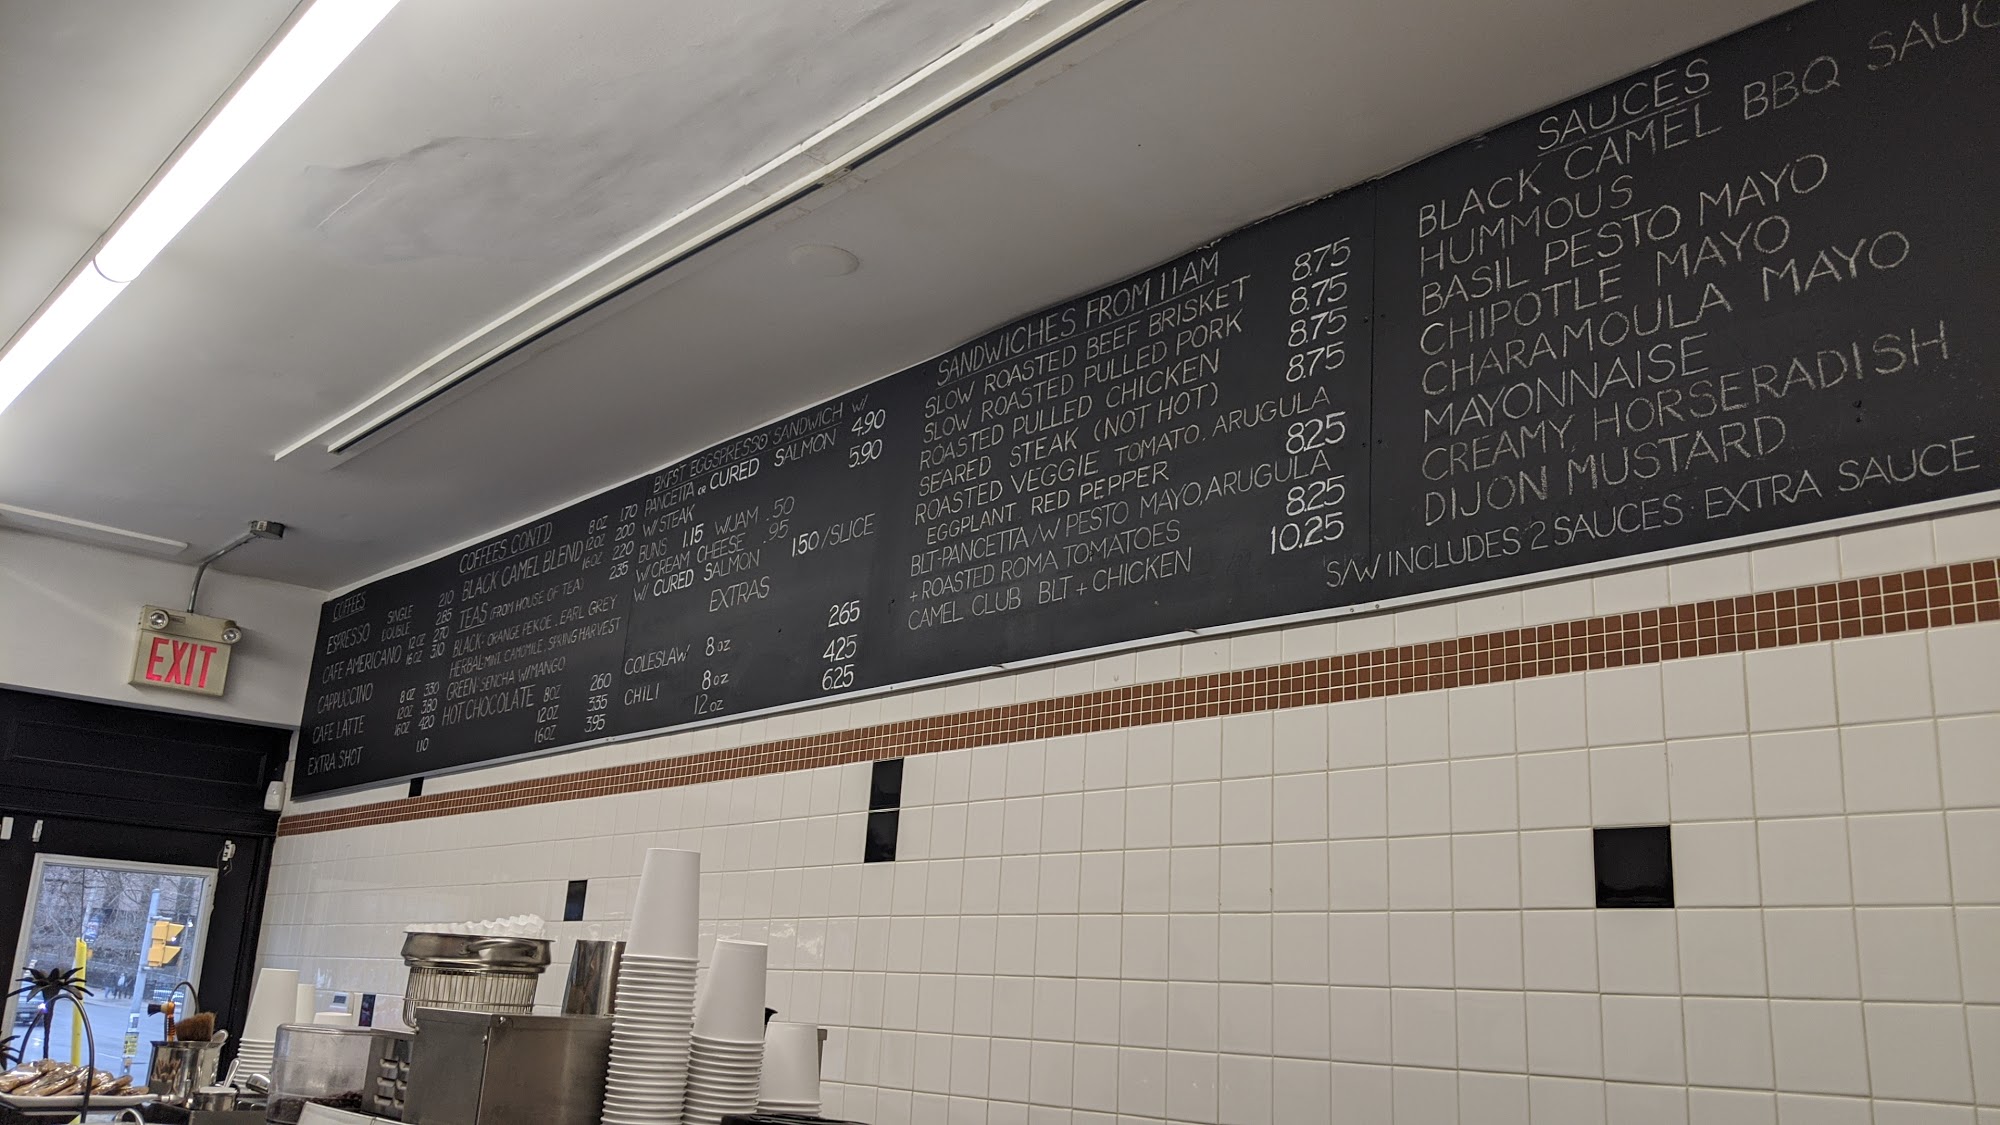 EXIT
COFFEES
ESPRESSO SINGLE 2.10
DOUBLE 2.85
CAFE AMERICANO 12 OZ 2.70
16 OZ 3.10
CAPPUCCINO
8 OZ 3.30
CAFE LATTE 12OZ 3.80
16OZ 4.20
EXTRA SHOT 1.10
COFFEES CONT'D
BLACK CAMEL BLEND 8 OZ 1.70
12 OZ 2.00
16 OZ 2.20
TEAS (FROM HOUSE OF TEA) 2.35
BLACK: ORANGE PEKOE, EARL GREY
HERBAL: MINT, CAMOMILE, SPRING HARVEST
GREEN: SENCHA W/MANGO
HOT CHOCOLATE 8OZ 2.60
12OZ 3.35
16OZ 3.95
BKFST EGGSPRESSO SANDWICH W/
PANCETTA OR CURED SALMON 4.90
W/ STEAK 5.90
BUNS 1.15 W/JAM .50
W/CREAM CHEESE .95
W/ CURED SALMON 1.50/SLICE
EXTRAS
COLESLAW 8 oz 2.65
CHILI 8 oz 4.25
12 oz 6.25
SANDWICHES FROM 11AM
SLOW ROASTED BEEF BRISKET 8.75
SLOW ROASTED PULLED PORK 8.75
ROASTED PULLED CHICKEN 8.75
SEARED STEAK (NOT HOT) 8.75
ROASTED VEGGIE TOMATO, ARUGULA
EGGPLANT, RED PEPPER 8.25
BLT-PANCETTA/W PESTO MAYO, ARUGULA
+ ROASTED ROMA TOMATOES 8.25
CAMEL CLUB BLT + CHICKEN 10.25
SAUCES
BLACK CAMEL BBQ SAUC
HUMMOUS
BASIL PESTO MAYO
CHIPOTLE MAYO
CHARAMOULA MAYO
MAYONNAISE
CREAMY HORSERADISH
DIJON MUSTARD
S/W INCLUDES 2 SAUCES · EXTRA SAUCE